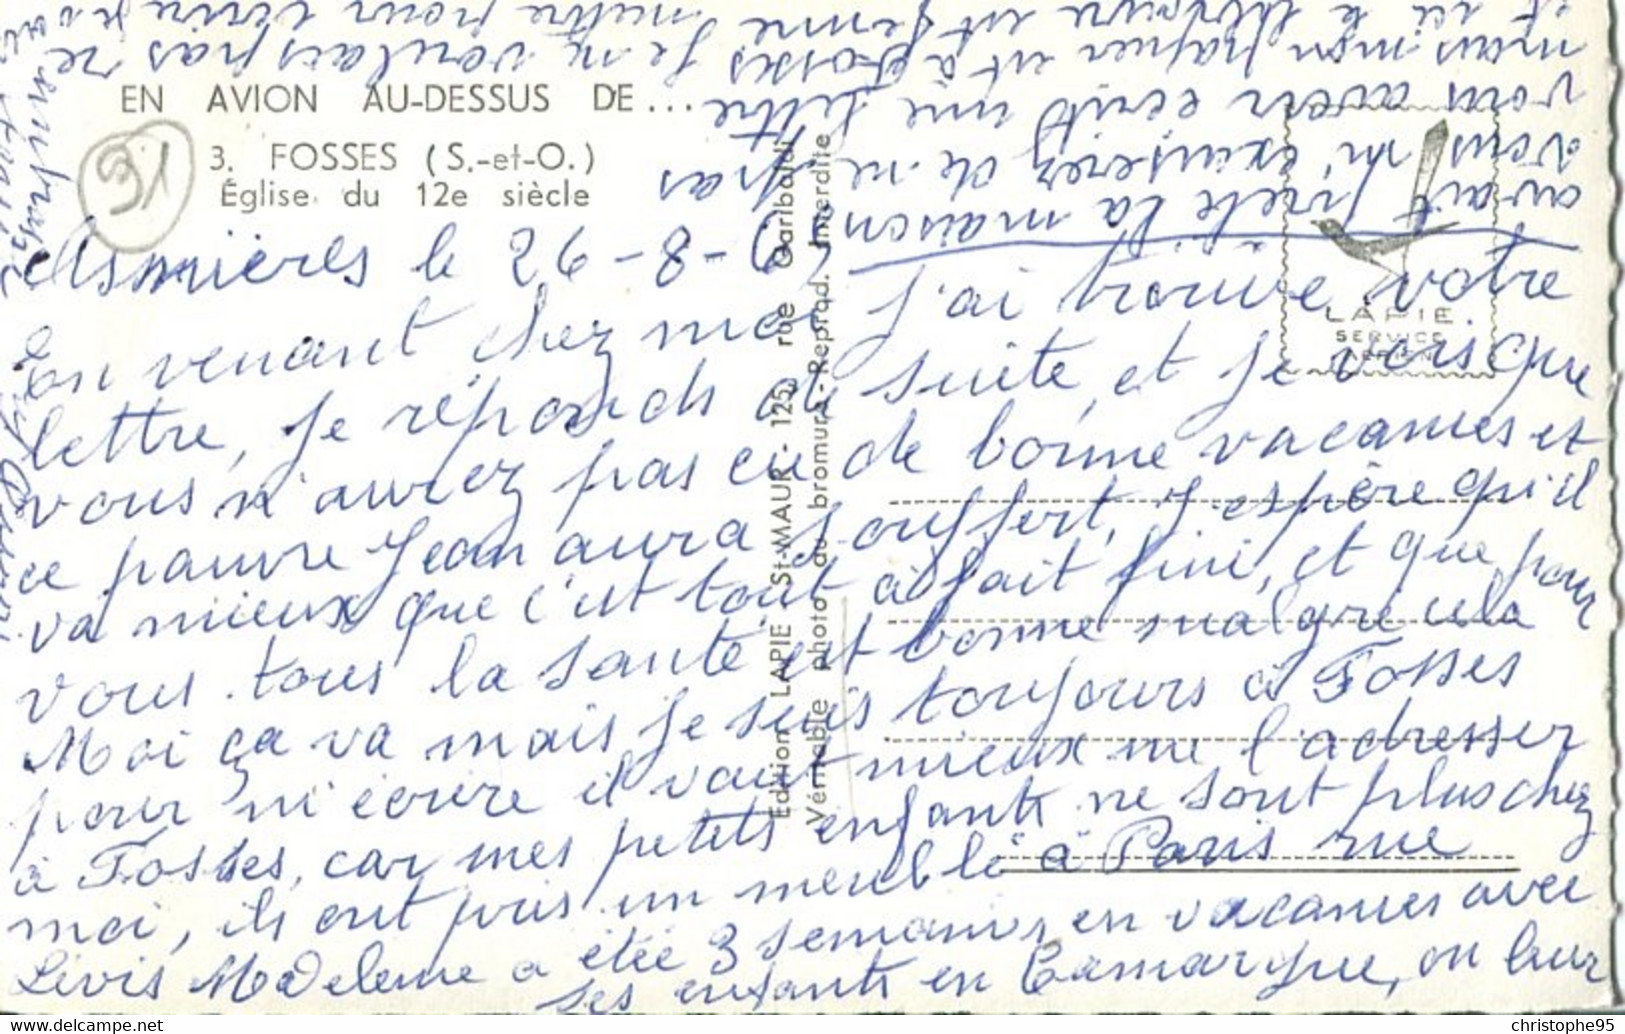 EN AVION AU-DESSUS DE...
3. FOSSES (S.-et-O.)
Église du 12e siècle
91
Edition LAPIE St-MAUR - 125, rue Garibaldi
Véritable photo au bromure - Reprod. Interdite
LAPIE
SERVICE
AERIEN
Asnières le 26-8-
En venant chez moi j'ai trouvé votre
lettre, je réponds de suite, et je vois que
vous n'avez pas eu de bonne vacances et
ce pauvre Jean aura souffert, j'espère qu'il
va mieux que c'est tout à fait fini, et que pour
vous tous la santé est bonne malgré cela
Moi ça va mais je suis toujours à Fosses
pour m'écrire il vaut mieux me l'adresser
à Fosses, car mes petits enfants ne sont plus chez
moi, ils ont pris un meublé à Paris rue
Lévis Madeleine a étée 3 semaines en vacances avec
ses enfants en Camargue, on leur
avait prété la maison
vous m'excuserez de ne pas
vous avoir écrit une lettre
mais mon papier est à Fosses je ne voulais pas re
mettre pour
christophe95